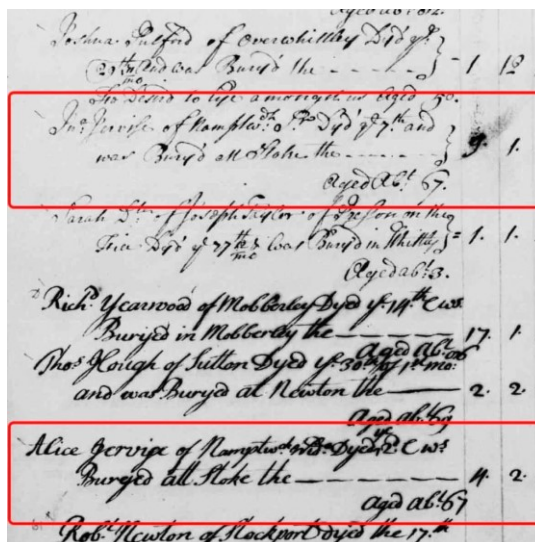 Aged abt
Joshua Pulford of Overwhittley Dy'd ye
and was Bury'd the - - - - - 1. 12
He Desired to lye amongst us Aged 50.
Jno. Jervise of Namptwch Dy'd ye 7th and
was Bury'd att Stoke the - - - - - 9. 1.
Aged Abt 67.
Sarah Dtr of Joseph Taylor of Preston on the
Dy'd ye 27th & was Bury'd in Whittly 1. 1.
mo
Aged abt 3.
Richd Yearwood of Mobberley Dyed ye 14th & ws
Buryed in Mobberley the - - - - - 17. 1.
Aged abt
Thos Hough of Sutton Dyed ye 30th of 1st mo:
and was Buryed at Newton the - - - 2. 2.
Aged abt 69
Alice Jervise of Namptwch Dyed ye 2d & ws
Buryed att Stoke the - - - - - 4. 2.
aged abt 67
Robt Newton of Stockport dyed the 17th